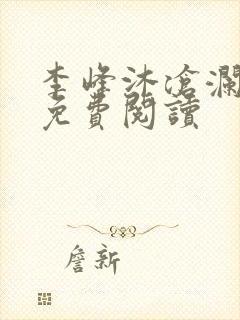 李峰沐滄瀾
免費閱讀
詹新